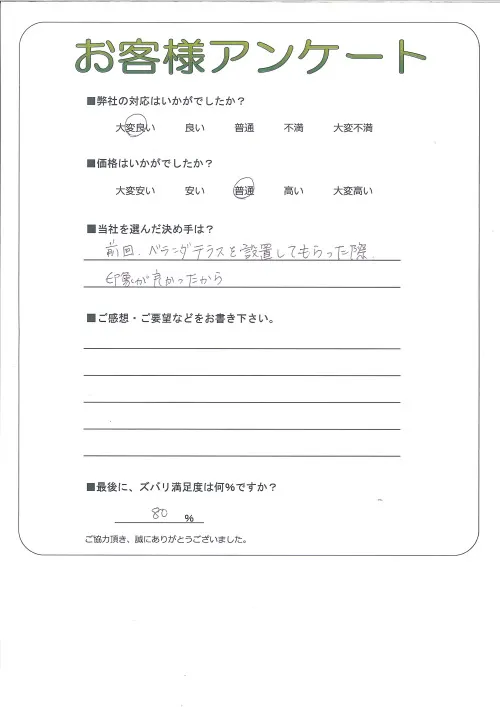 お客様アンケート
■弊社の対応はいかがでしたか？
大変良い 良い 普通 不満 大変不満
■価格はいかがでしたか？
大変安い 安い 普通 高い 大変高い
■当社を選んだ決め手は？
前回、ベランダテラスを設置してもらった際、
印象が良かったから
■ご感想・ご要望などをお書き下さい。
■最後に、ズバリ満足度は何%ですか？
80 %
ご協力頂き、誠にありがとうございました。